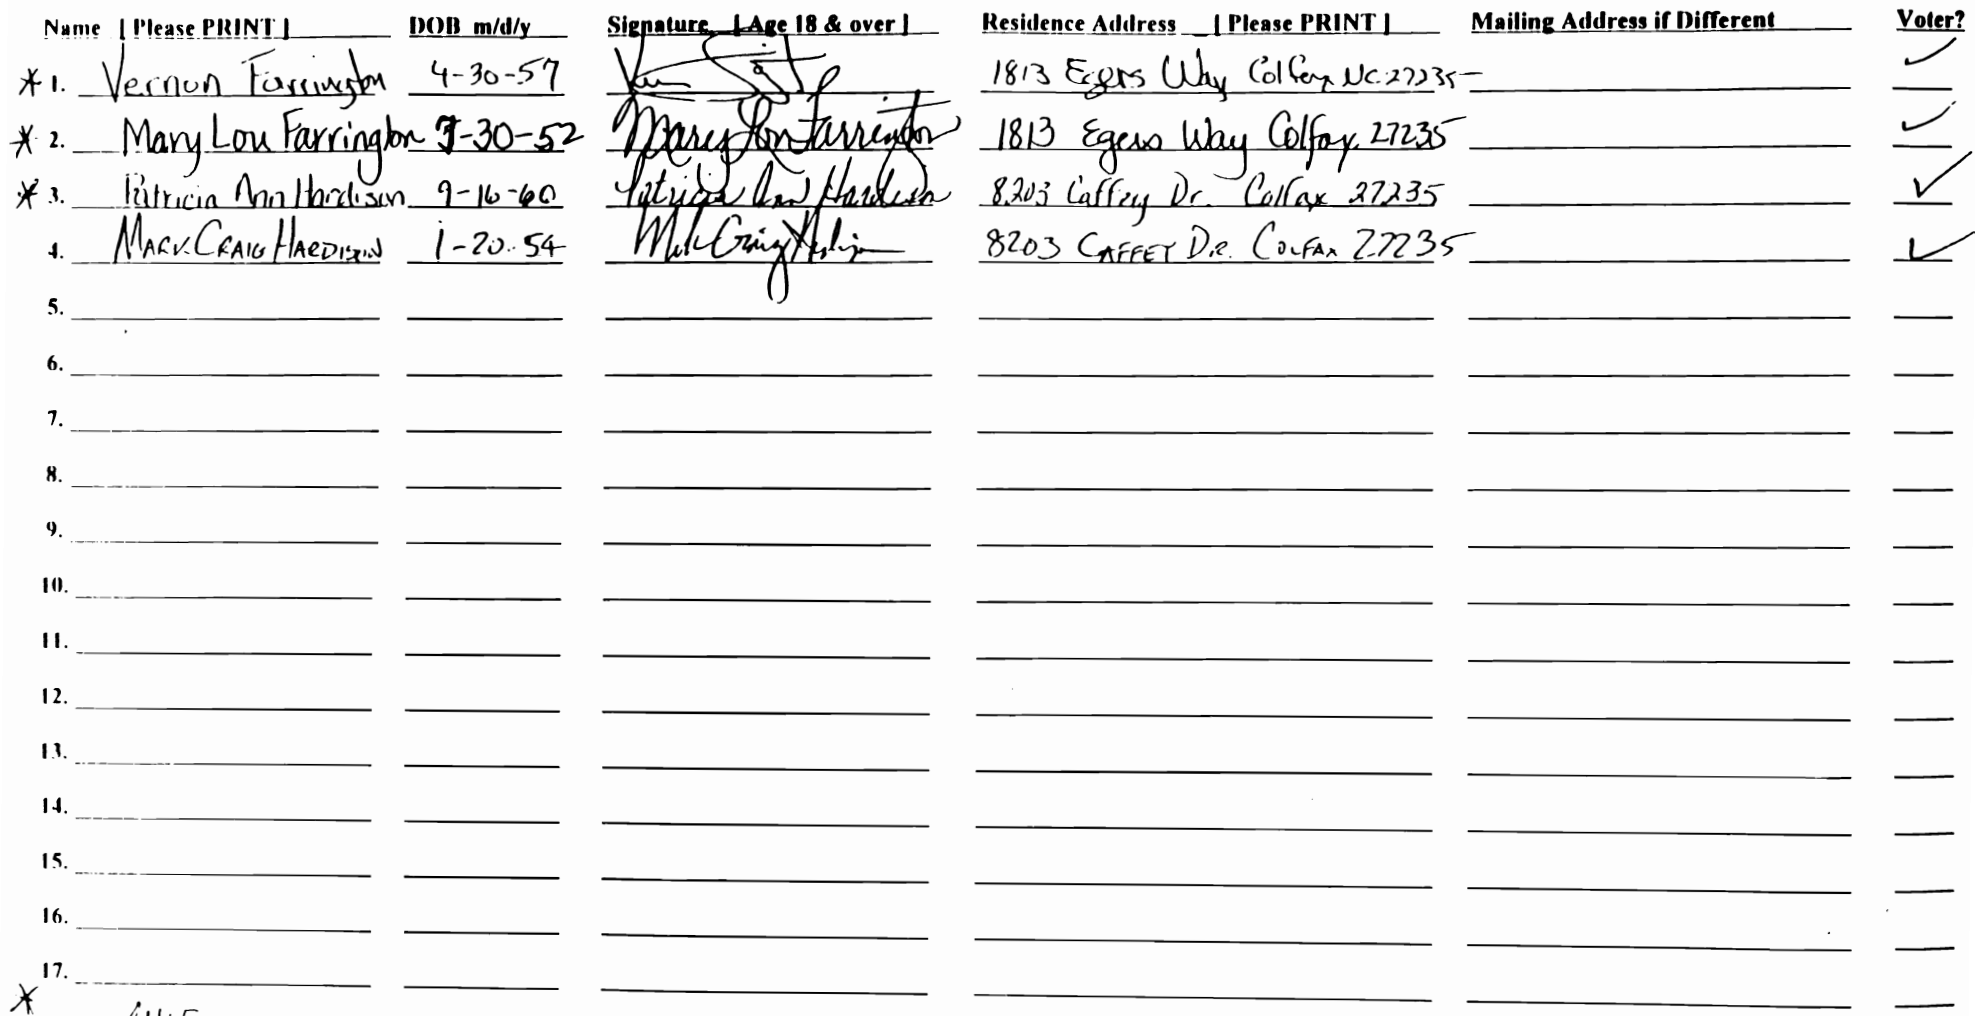 Name [Please PRINT] DOB m/d/y Signature [Age 18 & over] Residence Address [Please PRINT] Mailing Address if Different Voter?
* 1. Vernon Farrington 4-30-57 1813 Egers Way Colfax NC 27235 ✓
* 2. Mary Lou Farrington 3-30-52 Mary Lou Farrington 1813 Egers Way Colfax 27235 ✓
* 3. Patricia Ann Hardison 9-16-60 Patricia Ann Hardison 8203 Caffey Dr. Colfax 27235 ✓
4. Mark Craig Hardison 1-20-54 Mark Craig Hardison 8203 Caffey Dr. Colfax 27235 ✓
5.
6.
7.
8.
9.
10.
11.
12.
13.
14.
15.
16.
17.
*